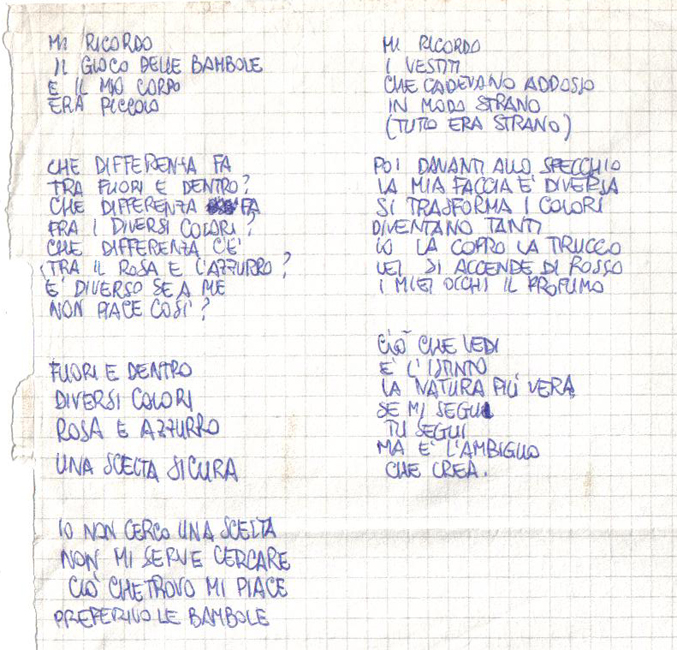 MI RICORDO
IL GIOCO DELLE BAMBOLE
E IL MIO CORPO
ERA PICCOLO
CHE DIFFERENZA FA
TRA FUORI E DENTRO?
CHE DIFFERENZA FA
FRA I DIVERSI COLORI?
CHE DIFFERENZA C'E'
TRA IL ROSA E L'AZZURRO?
E' DIVERSO SE A ME
NON PIACE COSI'?
FUORI E DENTRO
DIVERSI COLORI
ROSA E AZZURRO
UNA SCELTA SICURA
IO NON CERCO UNA SCELTA
NON MI SERVE CERCARE
CIO' CHE TROVO MI PIACE
PREFERIVO LE BAMBOLE
MI RICORDO
I VESTITI
CHE CADEVANO ADDOSSO
IN MODO STRANO
(TUTTO ERA STRANO)
POI DAVANTI ALLO SPECCHIO
LA MIA FACCIA E' DIVERSA
SI TRASFORMA I COLORI
DIVENTANO TANTI
IO LA COPRO LA TRUCCO
LEI SI ACCENDE DI ROSSO
I MIEI OCCHI IL PROFUMO
CIO' CHE VEDI
E' L'ISTINTO
LA NATURA PIÙ VERA
SE MI SEGUI
TU SEGUI
MA E' L'AMBIGUO
CHE CREA.